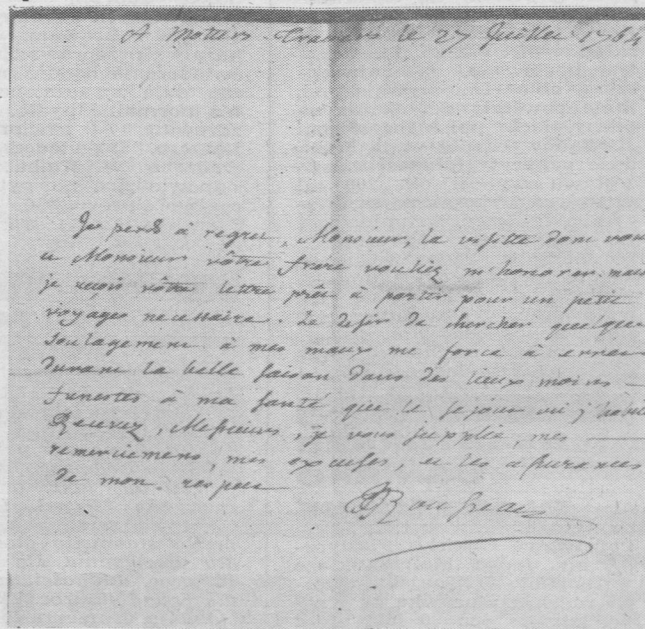 A Motiers-Travers le 27 Juillet 1764
Je perds à regret, Monsieur, la visitte dont vous
et Monsieur vôtre frere vouliez m'honorer. mais
je reçois vôtre lettre prêt à partir pour un petit
voyage necessaire. Le desir de chercher quelque
soulagement à mes maux me force à errer
durant la belle saison dans des lieux moins —
funestes à ma santé que le sejour où j'habite
Recevez, Messieurs, je vous supplie, mes —
remerciemens, mes excuses, et les assurances
de mon respect
JJRousseau